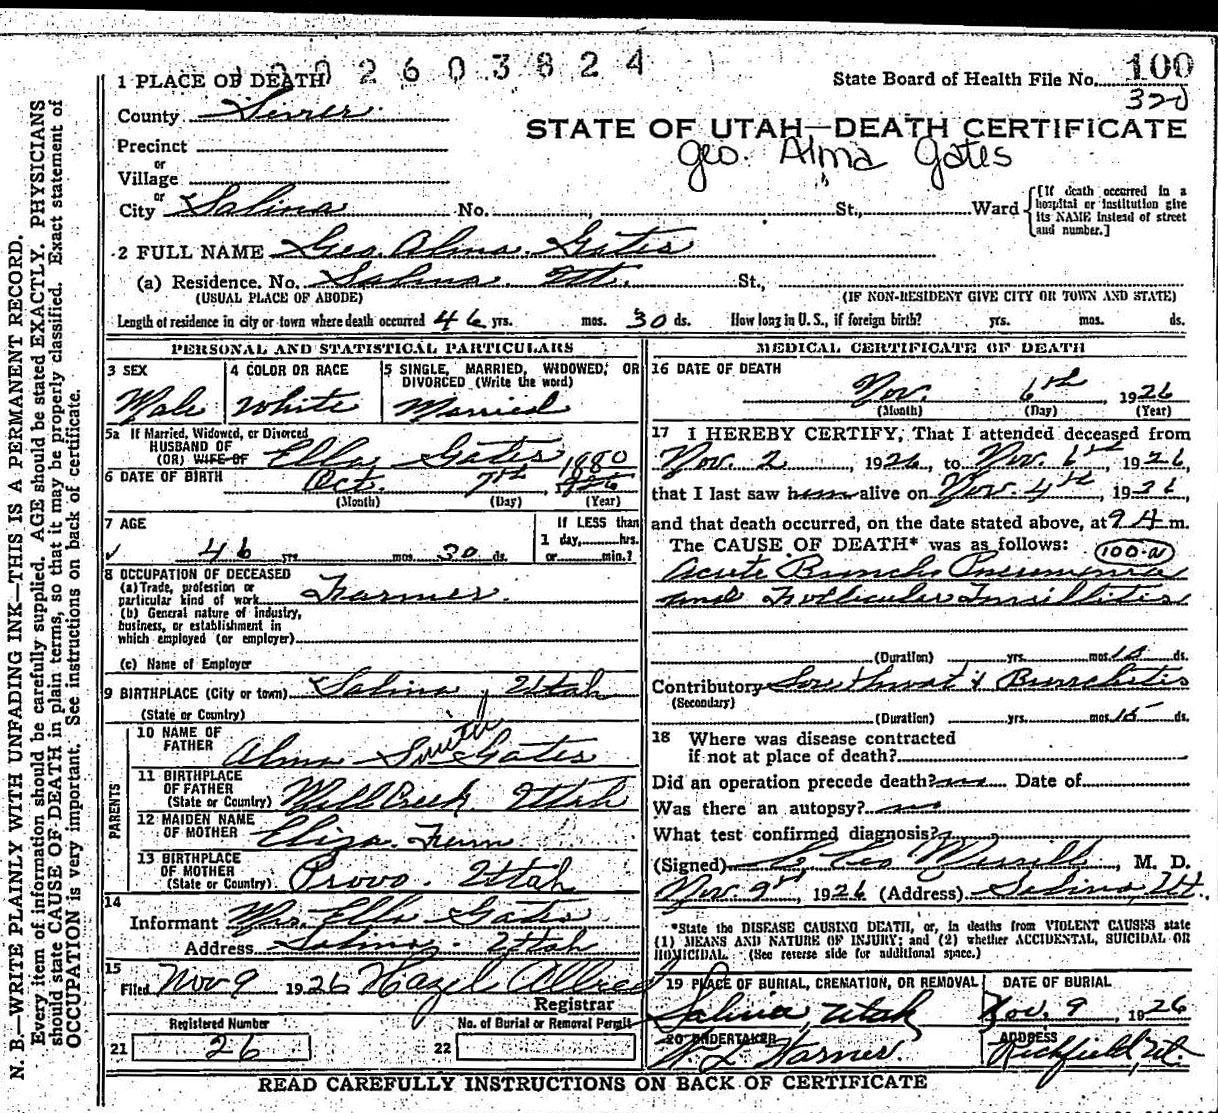 2603824
1 PLACE OF DEATH
State Board of Health File No. 100
320
County Sevier
STATE OF UTAH—DEATH CERTIFICATE
Geo. Alma Gates
Precinct
or
Village
or
City Salina No. St., Ward
[If death occurred in a
hospital or institution give
its NAME instead of street
and number.]
2 FULL NAME Geo. Alma Gates
(a) Residence. No. Salina Ut. St.,
(USUAL PLACE OF ABODE) (IF NON-RESIDENT GIVE CITY OR TOWN AND STATE)
Length of residence in city or town where death occurred 46 yrs. mos. 30 ds. How long in U. S., if foreign birth? yrs. mos. ds.
PERSONAL AND STATISTICAL PARTICULARS
3 SEX
Male
4 COLOR OR RACE
White
5 SINGLE, MARRIED, WIDOWED, OR
DIVORCED (Write the word)
Married
5a If Married, Widowed, or Divorced
HUSBAND OF
(OR) WIFE OF Ella Gates
1880
6 DATE OF BIRTH Oct. 7th
(Month) (Day) (Year)
7 AGE
46 yrs mos. 30 ds.
If LESS than
1 day, hrs.
or min.?
8 OCCUPATION OF DECEASED
(a) Trade, profession or
particular kind of work Farmer.
(b) General nature of industry,
business, or establishment in
which employed (or employer)
(c) Name of Employer
9 BIRTHPLACE (City or town) Salina, Utah
(State or Country)
PARENTS
10 NAME OF
FATHER Alma Smith Gates
11 BIRTHPLACE
OF FATHER
(State or Country) Mill Creek Utah
12 MAIDEN NAME
OF MOTHER Eliza
13 BIRTHPLACE
OF MOTHER
(State or Country) Provo. Utah
14
Informant Mrs. Ella Gates
Address Salina - Utah
15
Filed Nov 9 1926 Hazel Allred
Registrar
Registered Number
21 26
No. of Burial or Removal Permit
22
MEDICAL CERTIFICATE OF DEATH
16 DATE OF DEATH
Nov. 6th, 1926
(Month) (Day) (Year)
17 I HEREBY CERTIFY, That I attended deceased from
Nov. 2, 1926, to Nov. 6th, 1926,
that I last saw him alive on Nov. 4th, 1926,
and that death occurred, on the date stated above, at 9 A m.
The CAUSE OF DEATH* was as follows:
100-a
Acute Broncho Pneumonia
and Follicular Tonsillitis
(Duration) yrs. mos. ds.
Contributory Sore throat & Bronchitis
(Secondary)
(Duration) yrs. mos. 15 ds.
18 Where was disease contracted
if not at place of death?
Did an operation precede death? no Date of
Was there an autopsy? no
What test confirmed diagnosis?
(Signed) Leo Merrill, M. D.
Nov. 9th, 1926 (Address) Salina, Ut.
*State the DISEASE CAUSING DEATH, or, in deaths from VIOLENT CAUSES state
(1) MEANS AND NATURE OF INJURY; and (2) whether ACCIDENTAL, SUICIDAL OR
HOMICIDAL. (See reverse side for additional space.)
19 PLACE OF BURIAL, CREMATION, OR REMOVAL
Salina, Utah
DATE OF BURIAL
Nov. 9, 1926
20 UNDERTAKER
ADDRESS
Richfield, Ut.
READ CAREFULLY INSTRUCTIONS ON BACK OF CERTIFICATE
N. B.—WRITE PLAINLY WITH UNFADING INK—THIS IS A PERMANENT RECORD.
Every item of information should be carefully supplied. AGE should be stated EXACTLY. PHYSICIANS
should state CAUSE OF DEATH in plain terms, so that it may be properly classified. Exact statement of
OCCUPATION is very important. See instructions on back of certificate.